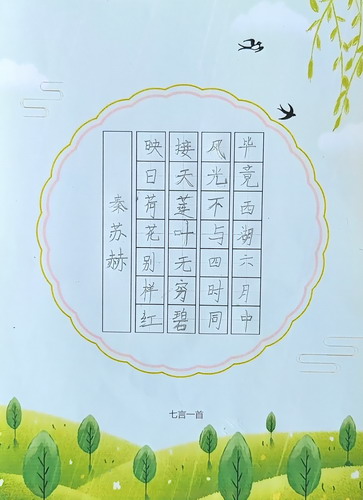 毕竟西湖六月中
风光不与四时同
接天莲叶无穷碧
映日荷花别样红
秦苏赫
七言一首